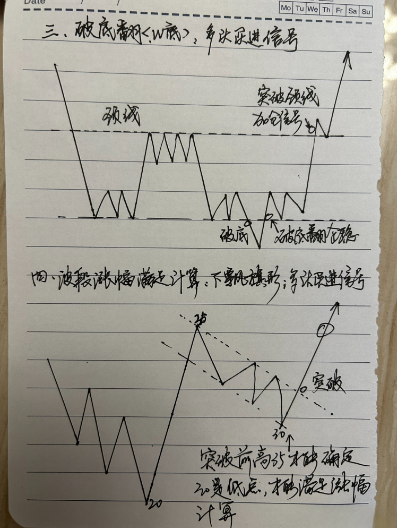 Date / /
Mo Tu We Th Fr Sa Su
三、破底翻(W底):多头买进信号
颈线
突破颈线
加仓信号
破底
破底翻
四、波段涨幅满足计算、下飘旗形:多头买进信号
25
突破
30
突破前高35才能确定
30是低点,才能满足涨幅
计算
20